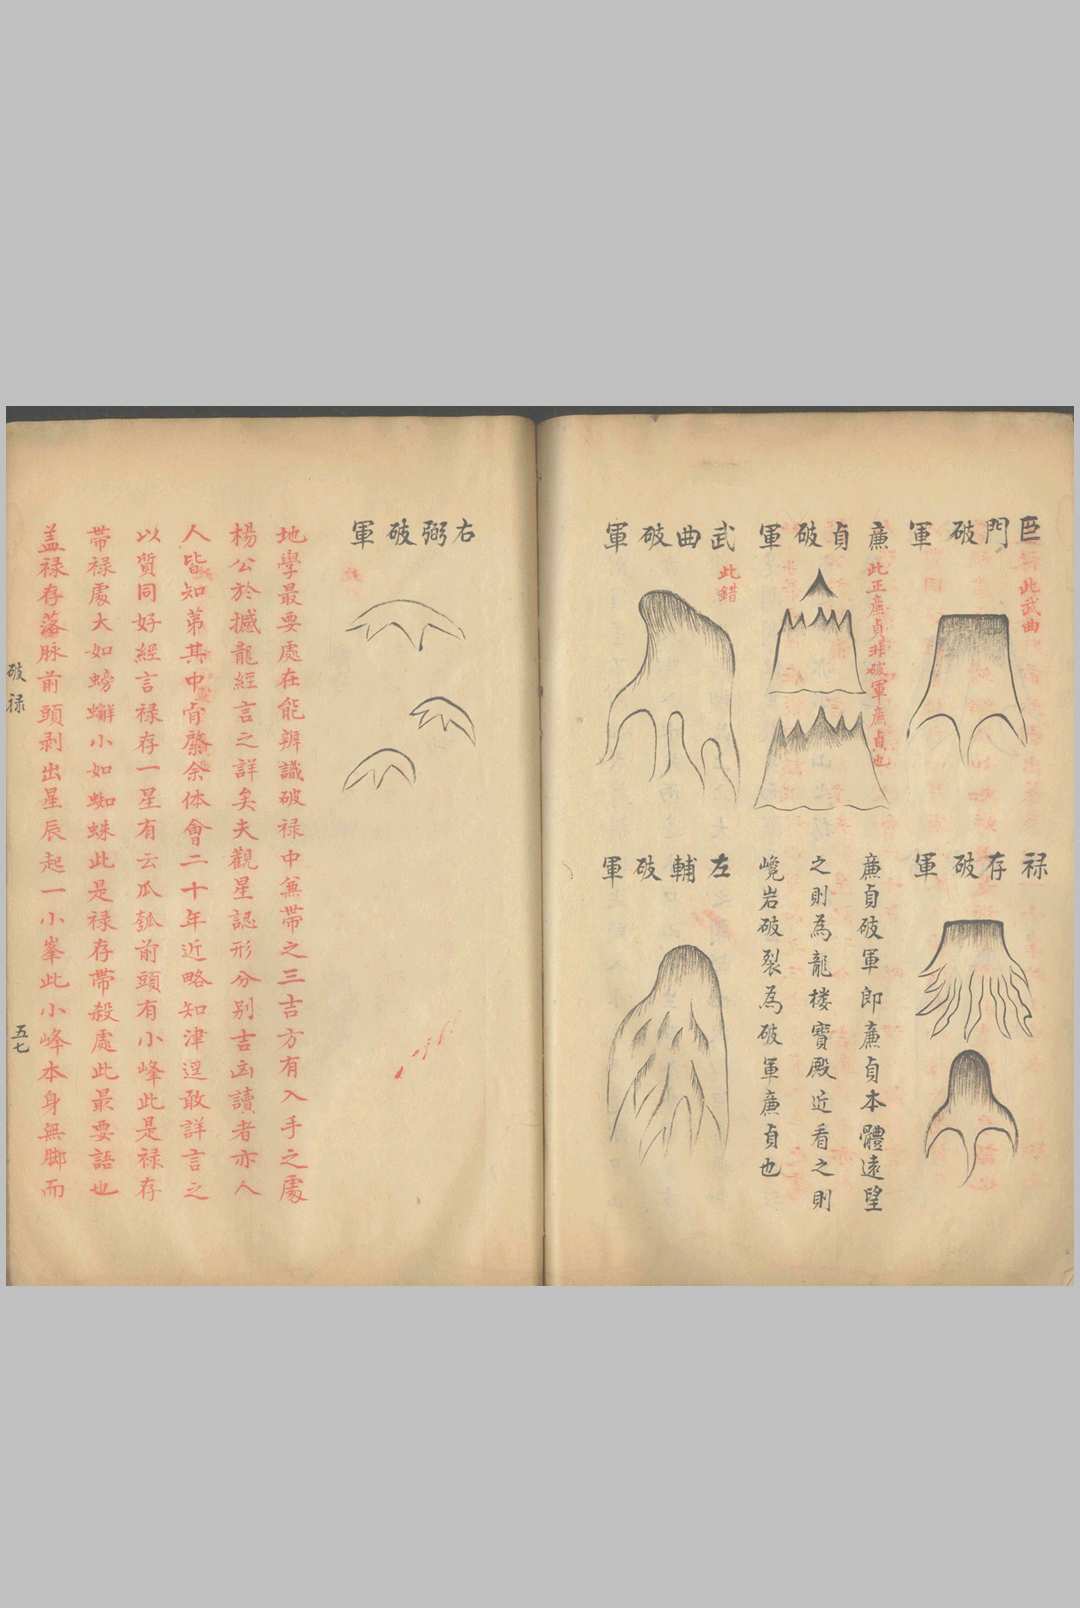 巨門破軍
此武曲
祿存破軍
廉貞破軍
此正廉貞非破軍廉貞也
廉貞破軍即廉貞本體遠望
之則為龍楼寶殿近看之則
巉岩破裂為破軍廉貞也
武曲破軍
此錯
左輔破軍
右弼破軍
地學最要處在能辨識破禄中兼帶之三吉方有入手之處
楊公於撼龍經言之詳矣夫觀星認形分别吉凶讀者亦人
人皆知第其中肯綮余体會二十年近略知津逕敢詳言之
以質同好經言禄存一星有云瓜瓠前頭有小峰此是禄存
帶禄處大如螃蠏小如蜘蛛此是禄存帶殺處此最要語也
盖禄存落脉前頭剥出星辰起一小峯此小峰本身無脚而
破禄
五七